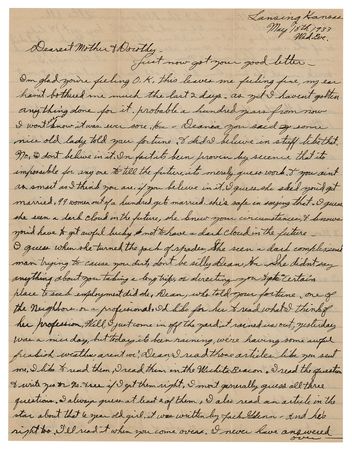 Lansing Kansas
May 18th, 1937
Wed. Eve.
Dearest Mother & Dorothy -
Just now got your good letter -
I'm glad you're feeling O.K. this leaves me feeling fine, my ear
hasn't bothered me much the last 2 days, as yet I haven't gotten
anything done for it, probable a hundred years from now
I won't know it was ever sore, but - Deanea you said some
nice old lady told you your fortune, & did I believe in stuff like that.
No, I don't believe in it. In fact it's been proven by science that it's
impossible for any one to tell the future, it's merely guess work. & you aint
as smart as I think you are if you believe in it. I guess she said you'd get
married, 99 women out of a hundred get married. she's safe in saying that. I guess
she seen a dark cloud in the future, she knew your circumstances & knows
you'd have to get awful lucky & not to have a dark cloud in the future -
I guess when she turned the jack of spades, she seen a dark complexioned
man trying to cause you dirt, don't be silly Dean. No she didn't say
anything about you taking a long trip, or directing you to a certain
place to seek employment did she, Dean, who told your fortune, one of
the Neighbors or a professional. I'd like for her to read what I think of
her profession, Well I just come in off the yard it rained us out, yesterday
was a nice day, but today it's been raining, we're having some awful
freakish weather arent we! Dean I read those articles like you sent
me, I like to read them, I read them in the Wichita Beacon. I read the question
& write yes or no & see if I get them right, I most generally guess all three
questions, I always guess at least 2 of them, I also read an article in the
star about that 6 year old girl, it was written by Jack & he's
right too, I'll read it when you come over. I never have answered
over -